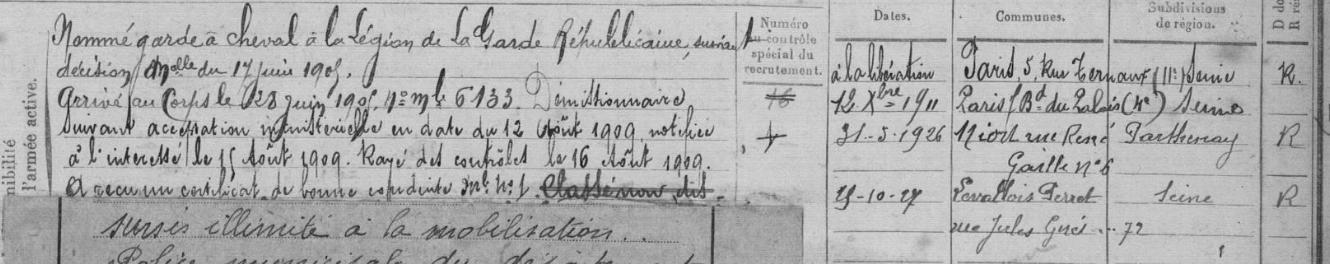 Nommé garde à cheval à la Légion de la Garde Républicaine, suivant
décision Mlle du 17 juin 1905.
Arrivé au Corps le 28 juin 1905, No Ml 6133. Démissionnaire
suivant acceptation ministérielle en date du 12 Août 1909 notifiée
à l'intéressé le 15 Août 1909. Rayé des contrôles le 16 Août 1909.
A reçu un certificat de bonne conduite Classé non dis
sursis illimité à la mobilisation..
Police municipale du
nibilité
l'armée active.
Numéro
au contrôle
spécial du
recrutement.
16
Dates. Communes. Subdivisions
de région.
D do
R rés
à la libération Paris, 5 Rue Ternaux (11e) Seine R.
12 Xbre 1911 Paris, Bd du Palais (4e) Seine
31-5-1926 Niort rue René Parthenay R
No 6
25-10-27 Levallois Perret Seine R
rue Jules 72